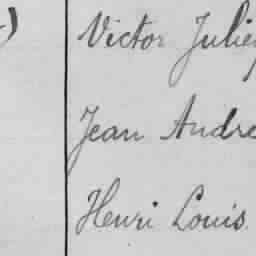 Victor Julien
Jean André
Henri Louis